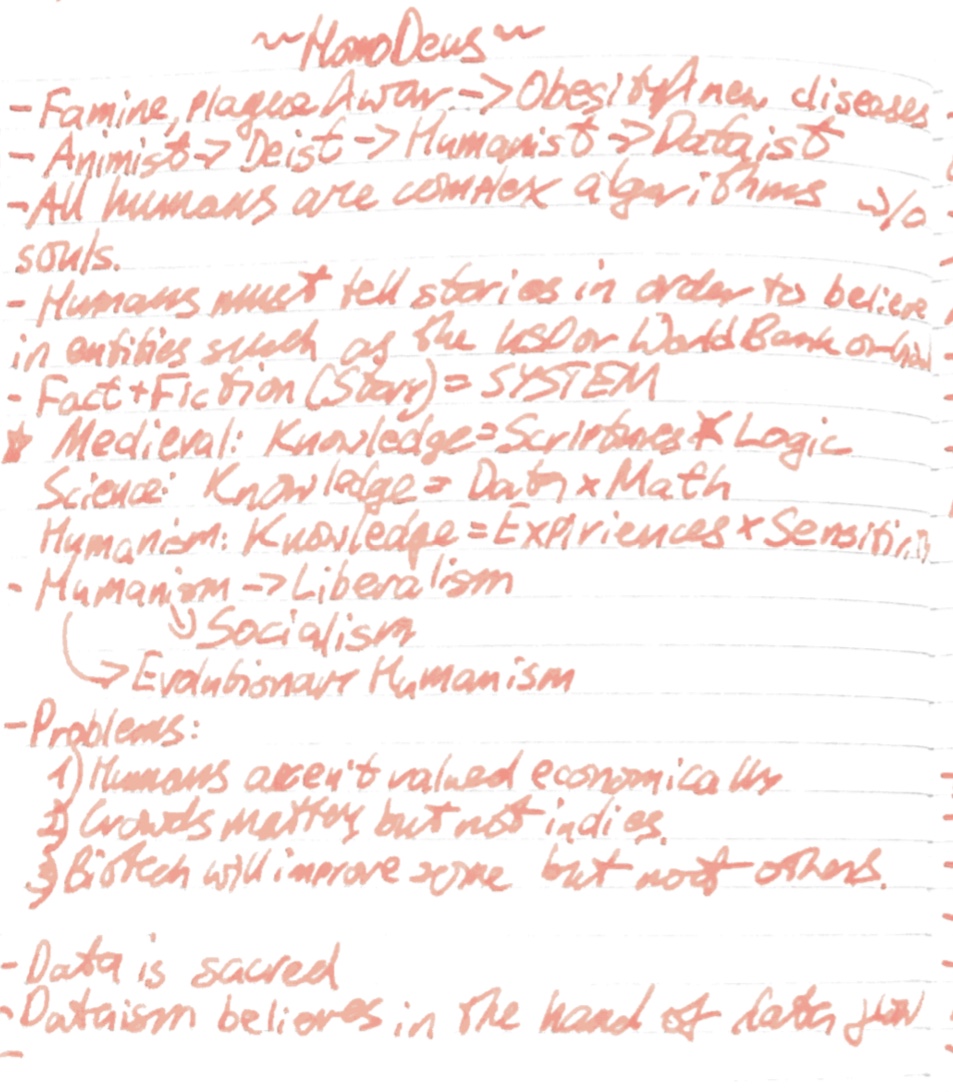 ~HomoDeus~
- Famine, Plague & war -> Obesity & new diseases
- Animist -> Deist -> Humanist -> Dataist
- All humans are complex algorithms w/o
souls.
- Humans must tell stories in order to believe
in entities such as the USD or World Bank or
- Fact + Fiction (Story) = SYSTEM
★ Medieval: Knowledge = Scriptures × Logic
Science: Knowledge = Data × Math
Humanism: Knowledge = Experiences × Sensitivity
- Humanism -> Liberalism
-> Socialism
-> Evolutionary Humanism
- Problems:
1) Humans aren't valued economically
2) Crowds matter but not indies.
3) Biotech will improve some but not others.
- Data is sacred
- Dataism believes in the hand of data flow
-